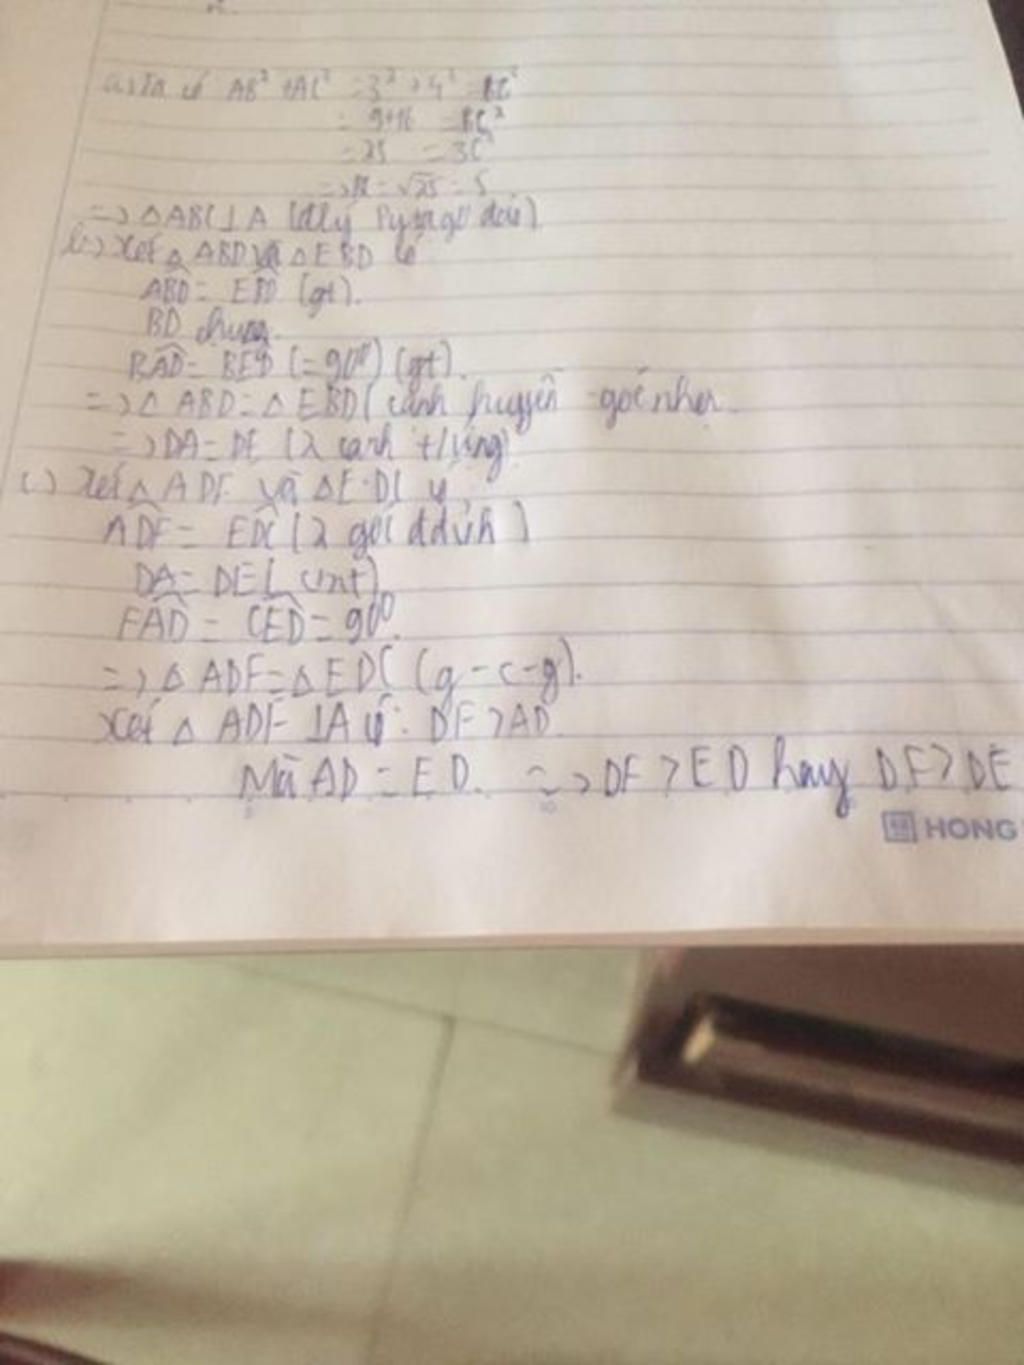 a) Ta có AB² + AC² = 3² + 4² = BC²
= 9+16 = BC²
= 25 = BC²
=> BC = √25 = 5
=> △ABC ⊥ A (đlý Pytago đảo)
b) Xét △ABD và △EBD có
ABD̂ = EBD̂ (gt).
BD chung.
BAD̂ = BED̂ (=90⁰) (gt).
=> △ABD = △EBD (cạnh huyền - góc nhọn.
=> DA = DE (2 cạnh t/ứng)
c) Xét △ADF và △EDC có
ADF̂ = EDĈ (2 góc đđỉnh)
DA = DE (cmt)
FAD̂ = CED̂ = 90⁰.
=> △ADF = △EDC (g-c-g).
Xét △ADF ⊥A có: DF > AD.
Mà AD = ED. => DF > ED hay DF > DE
HONG